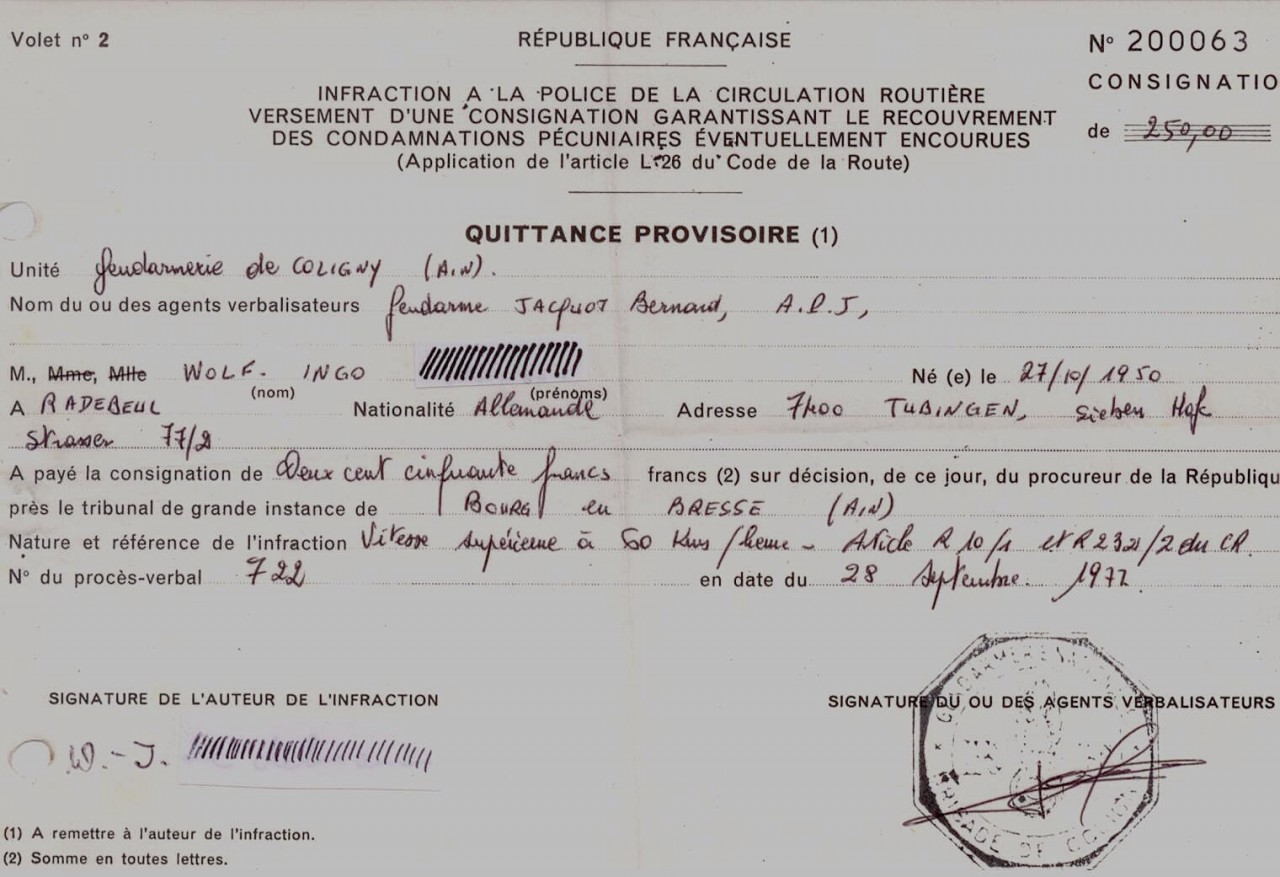 Volet nº 2
RÉPUBLIQUE FRANÇAISE
Nº 200063
CONSIGNATIO
INFRACTION A LA POLICE DE LA CIRCULATION ROUTIÈRE
VERSEMENT D'UNE CONSIGNATION GARANTISSANT LE RECOUVREMENT
DES CONDAMNATIONS PÉCUNIAIRES ÉVENTUELLEMENT ENCOURUES
de 250,00
(Application de l'article L. 26 du Code de la Route)
QUITTANCE PROVISOIRE (1)
Unité Gendarmerie de COLIGNY (AIN).
Nom du ou des agents verbalisateurs Gendarme JACQUOT Bernard, A.P.J,
M., Mme, Mlle WOLF. INGO Né (e) le 27/10/1950
(nom) (prénoms)
A RADEBEUL Nationalité Allemande Adresse 7400 TUBINGEN, Sieben Hofe
Strasser 77/2
A payé la consignation de Deux cent cinquante francs francs (2) sur décision, de ce jour, du procureur de la Républiqu
près le tribunal de grande instance de BOURG en BRESSE (AIN)
Nature et référence de l'infraction Vitesse supérieure à 60 Kms/heure - Article R 10/1 et R 232/2 du CR.
Nº du procès-verbal 722 en date du 28 Septembre 1977
SIGNATURE DE L'AUTEUR DE L'INFRACTION
SIGNATURE DU OU DES AGENTS VERBALISATEURS
W.-I.
GENDARMERIE NATIONALE
BRIGADE DE COLIGNY
(1) A remettre à l'auteur de l'infraction.
(2) Somme en toutes lettres.